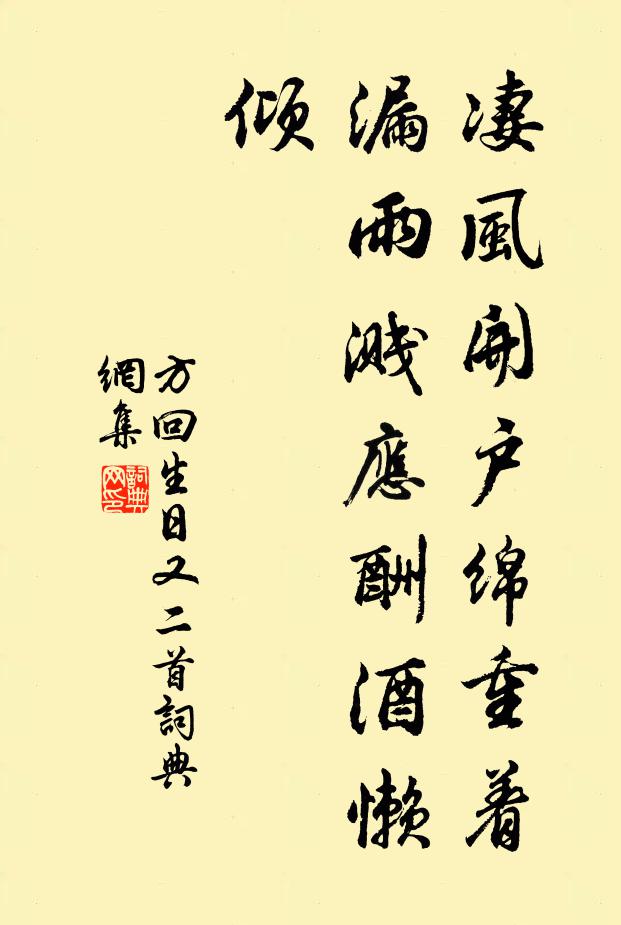 凄風開户綿重着
漏雨濺應酬酒懶
傾
方回生日又二首詞典
網集
詞典
网印